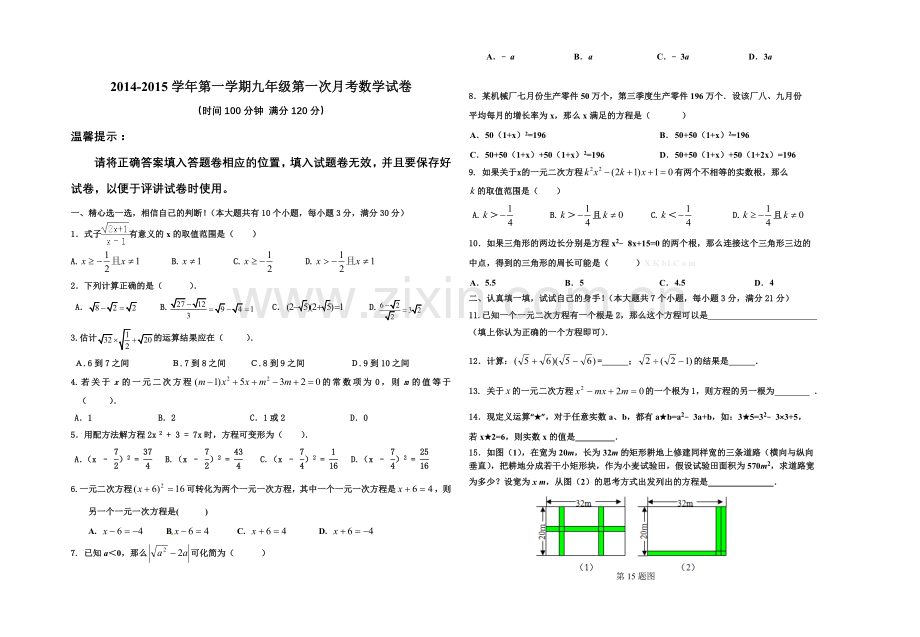 2014-2015 学年第一学期九年级第一次月考数学试卷
(时间 100 分钟 满分 120 分)
温馨提示：
请将正确答案填入答题卷相应的位置，填入试题卷无效，并且要保存好
试卷，以便于评讲试卷时使用。
一、精心选一选，相信自己的判断!（本大题共有 10 个小题，每小题 3 分，满分 30 分）
1．式子 √(2x+1)/(x－1) 有意义的 x 的取值范围是（　　）
A. x ≥ －1/2 且 x ≠ 1　　B. x ≠ 1　　C. x ≥ －1/2　　D. x > －1/2 且 x ≠ 1
2．下列计算正确的是（　　）.
A. √8－√2＝√2　　B. (√27－√12)/3＝√9－√4＝1　　C. (2－√5)(2＋√5)＝1　　D. (6－√2)/√2＝3√2
3.估计 √32×√(1/2)＋√20 的运算结果应在（　　）.
A.6 到 7 之间　　B.7 到 8 之间　　C.8 到 9 之间　　D.9 到 10 之间
4.若关于 x 的一元二次方程 (m－1)x²＋5x＋m²－3m＋2＝0 的常数项为 0，则 m 的值等于
（　　）.
A．1　　B．2　　C．1 或 2　　D．0
5．用配方法解方程 2x² + 3 = 7x 时，方程可变形为（　　）.
A.(x － 7/2)² = 37/4　　B.(x － 7/2)² = 43/4　　C.(x － 7/4)² = 1/16　　D.(x － 7/4)² = 25/16
6.一元二次方程 (x＋6)²＝16 可转化为两个一元一次方程，其中一个一元一次方程是 x＋6＝4，则
另一个一元一次方程是(　　)
A. x－6＝－4　　B. x－6＝4　　C. x＋6＝4　　D. x＋6＝－4
7．已知 a＜0，那么 |√a²－2a| 可化简为（　　）
A．﹣a　　B．a　　C．﹣3a　　D．3a
8．某机械厂七月份生产零件 50 万个，第三季度生产零件 196 万个．设该厂八、九月份
平均每月的增长率为 x，那么 x 满足的方程是（　　）
A．50（1+x）²=196　　B．50+50（1+x）²=196
C．50+50（1+x）+50（1+x）²=196　　D．50+50（1+x）+50（1+2x）=196
9．如果关于x的一元二次方程 k²x²－(2k＋1)x＋1＝0 有两个不相等的实数根，那么
k 的取值范围是（　　）
A. k＞－1/4　　B. k＞－1/4 且 k≠0　　C. k＜－1/4　　D. k≥－1/4 且 k≠0
10．如果三角形的两边长分别是方程 x²﹣8x+15=0 的两个根，那么连接这个三角形三边的
中点，得到的三角形的周长可能是（　　）
A．5.5　　B．5　　C．4.5　　D．4
二、认真填一填，试试自己的身手!（本大题共 7 个小题，每小题 3 分，满分 21 分）
11.已知一个一元二次方程有一个根是 2，那么这个方程可以是____________________
（填上你认为正确的一个方程即可）.
12．计算：(√5＋√6)(√5－√6)=______；√2÷(√2－1) 的结果是______．
13．关于 x 的一元二次方程 x²－mx＋2m＝0 的一个根为 1，则方程的另一根为________．
14．现定义运算"★"，对于任意实数 a、b，都有 a★b=a²﹣3a+b，如：3★5=3²﹣3×3+5，
若 x★2=6，则实数 x 的值是________．
15．如图（1），在宽为 20m，长为 32m 的矩形耕地上修建同样宽的三条道路（横向与纵向
垂直），把耕地分成若干小矩形块，作为小麦试验田，假设试验田面积为 570m²，求道路宽
为多少？设宽为 x m，从图（2）的思考方式出发列出的方程是______________．
32m　　32m
20m　　20m
（1）　　（2）
第 15 题图
www.zixin.com.cn